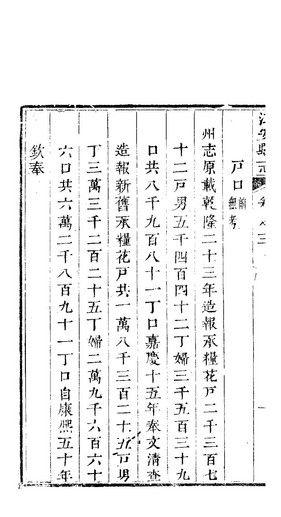 江安縣志
戶口
州志原載乾隆二十三年造報承糧花戶二千三百七
十二戶男五千四百四十二丁婦三千五百三十九
口共八千九百八十一丁口嘉慶十五年奉文清查
造報新舊承糧花戶共一萬八千三百二十五戶男
丁三萬三千二百二十五丁婦二萬九千六百六十
六口共六萬二千八百九十一丁口自康熙五十年
欽奉